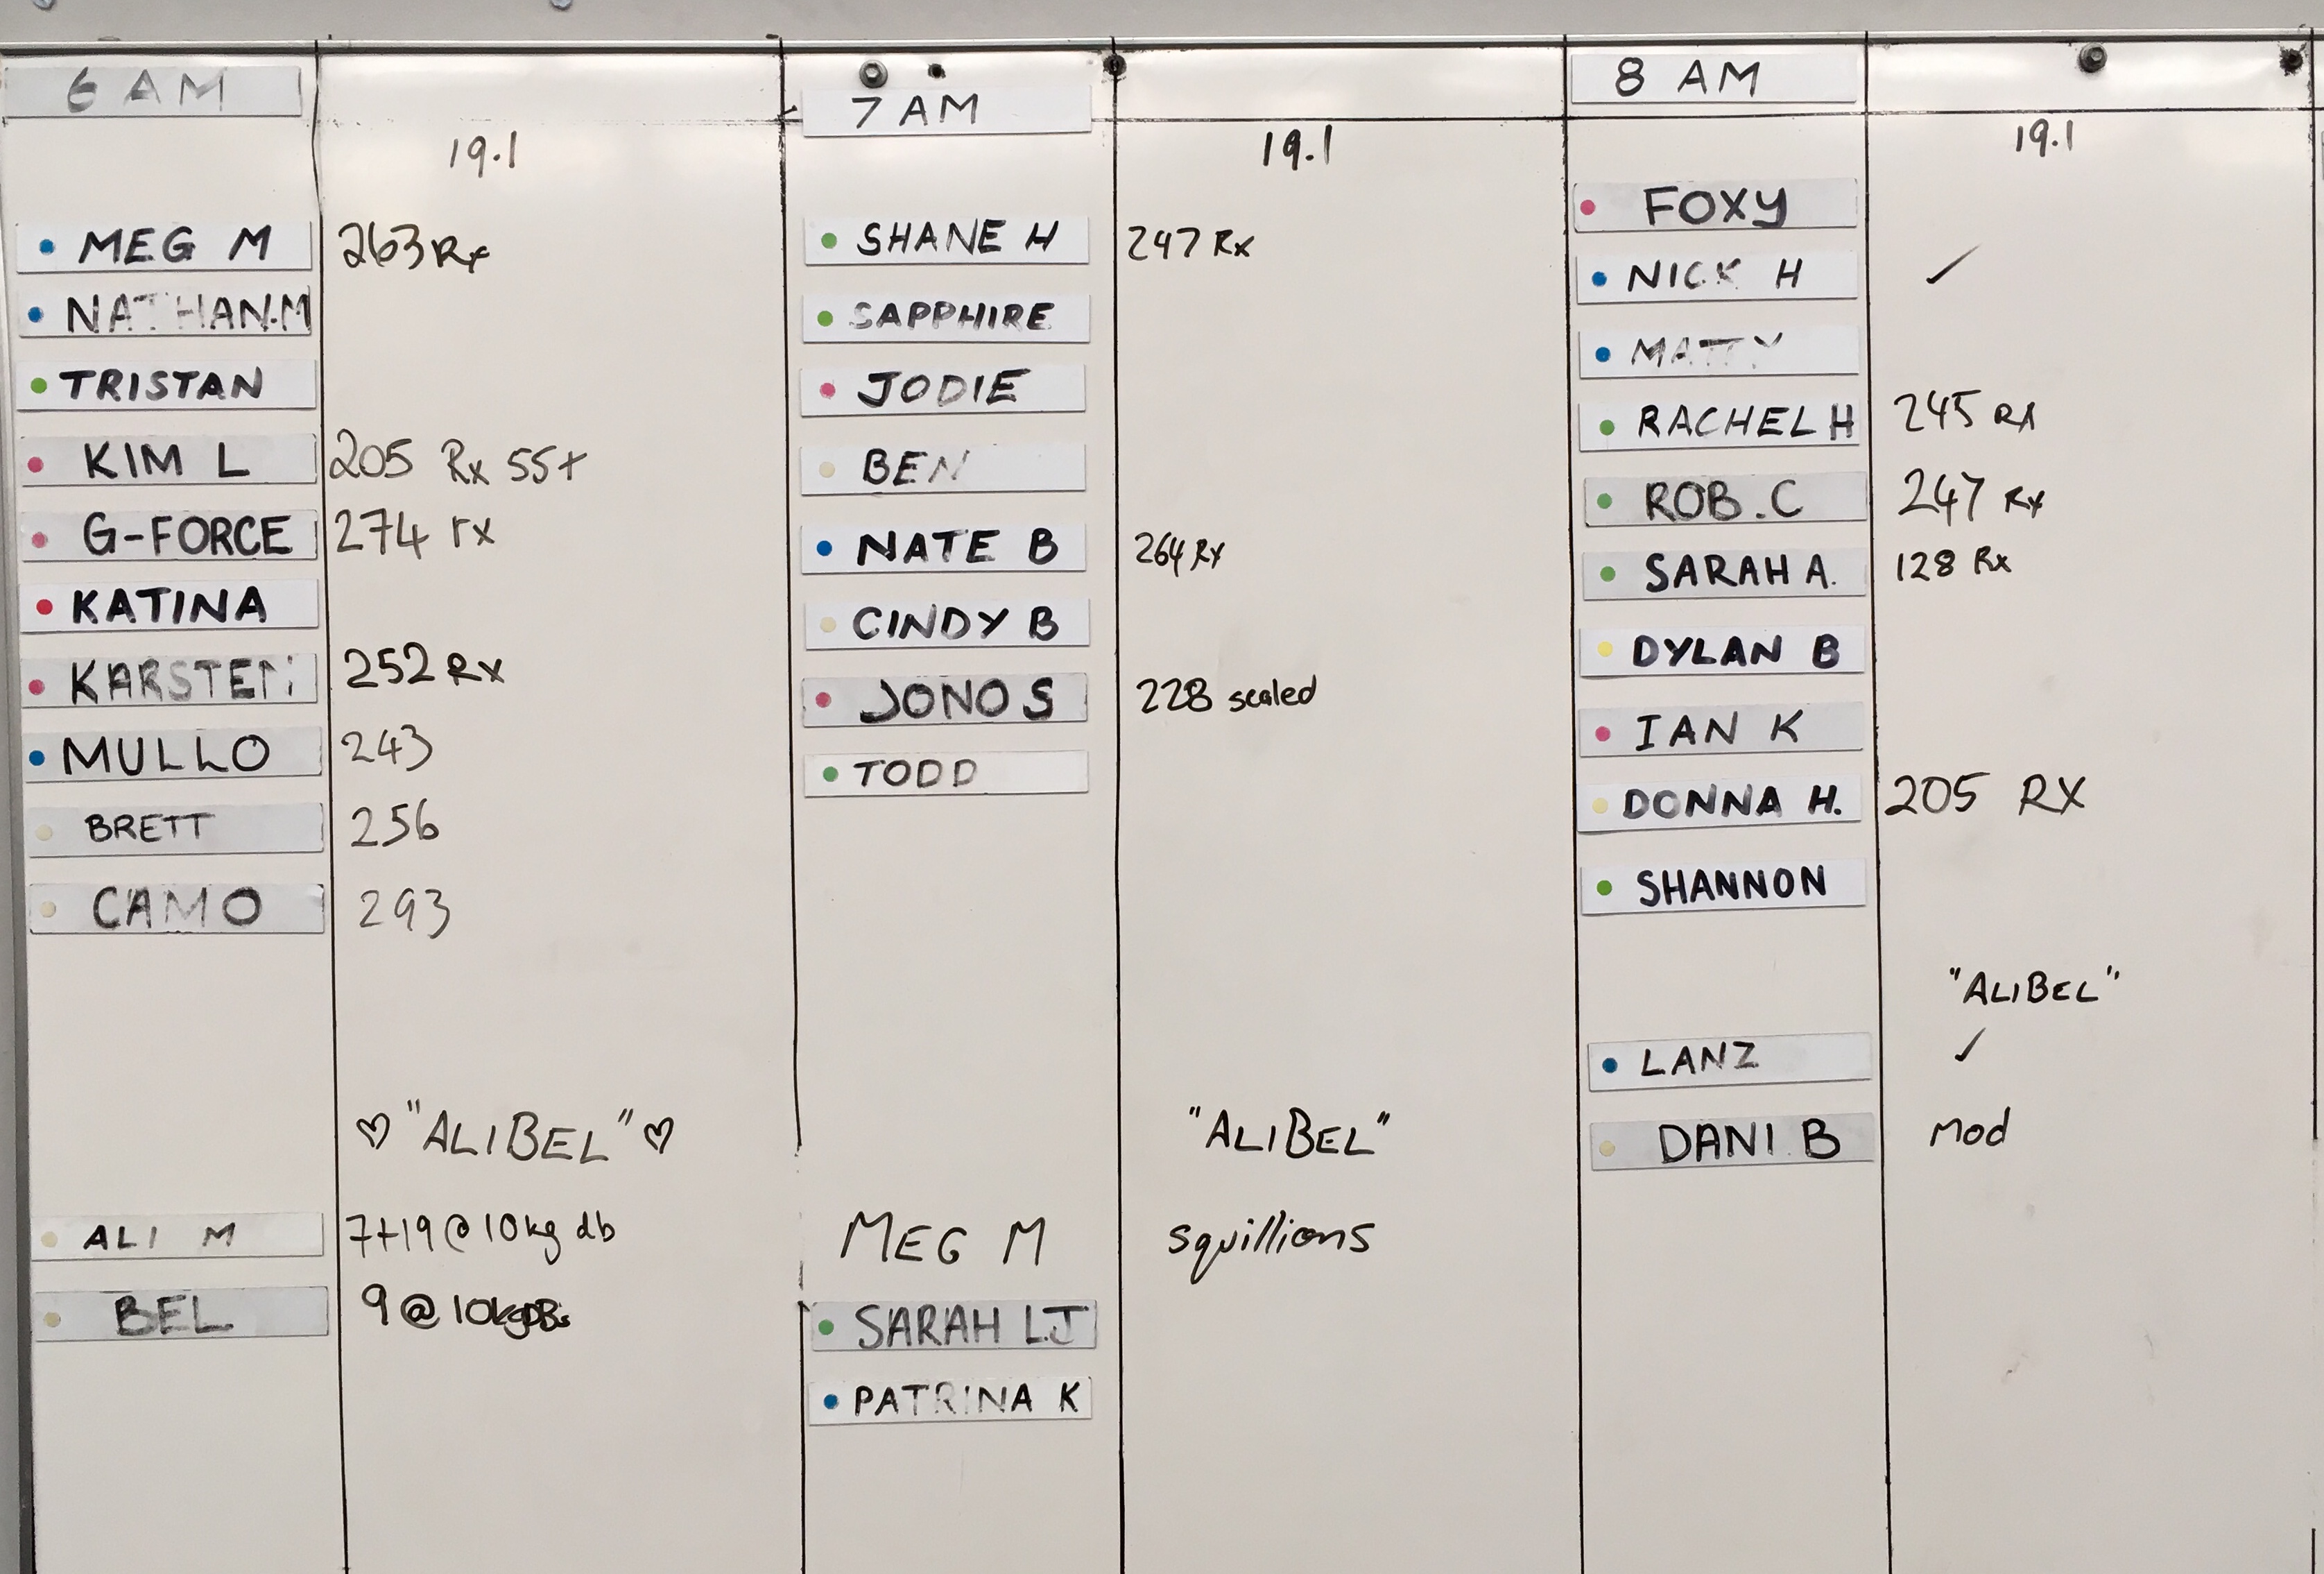 6 AM
19.1
MEG M 263 Rx
NATHAN.M
TRISTAN
KIM L 205 Rx 55+
G-FORCE 274 rx
KATINA
KARSTEN 252 Rx
MULLO 243
BRETT 256
CAMO 293
♡ "ALIBEL" ♡
ALI M 7+19 @ 10kg db
BEL 9 @ 10kg DBs
7 AM
19.1
SHANE H 247 Rx
SAPPHIRE
JODIE
BEN
NATE B 264 Rx
CINDY B
JONO S 228 scaled
TODD
"ALIBEL"
MEG M squillions
SARAH LJ
PATRINA K
8 AM
19.1
FOXY
NICK H ✓
MATTY
RACHEL H 245 RX
ROB.C 247 Rx
SARAH A. 128 Rx
DYLAN B
IAN K
DONNA H. 205 RX
SHANNON
"ALIBEL"
LANZ ✓
DANI B mod